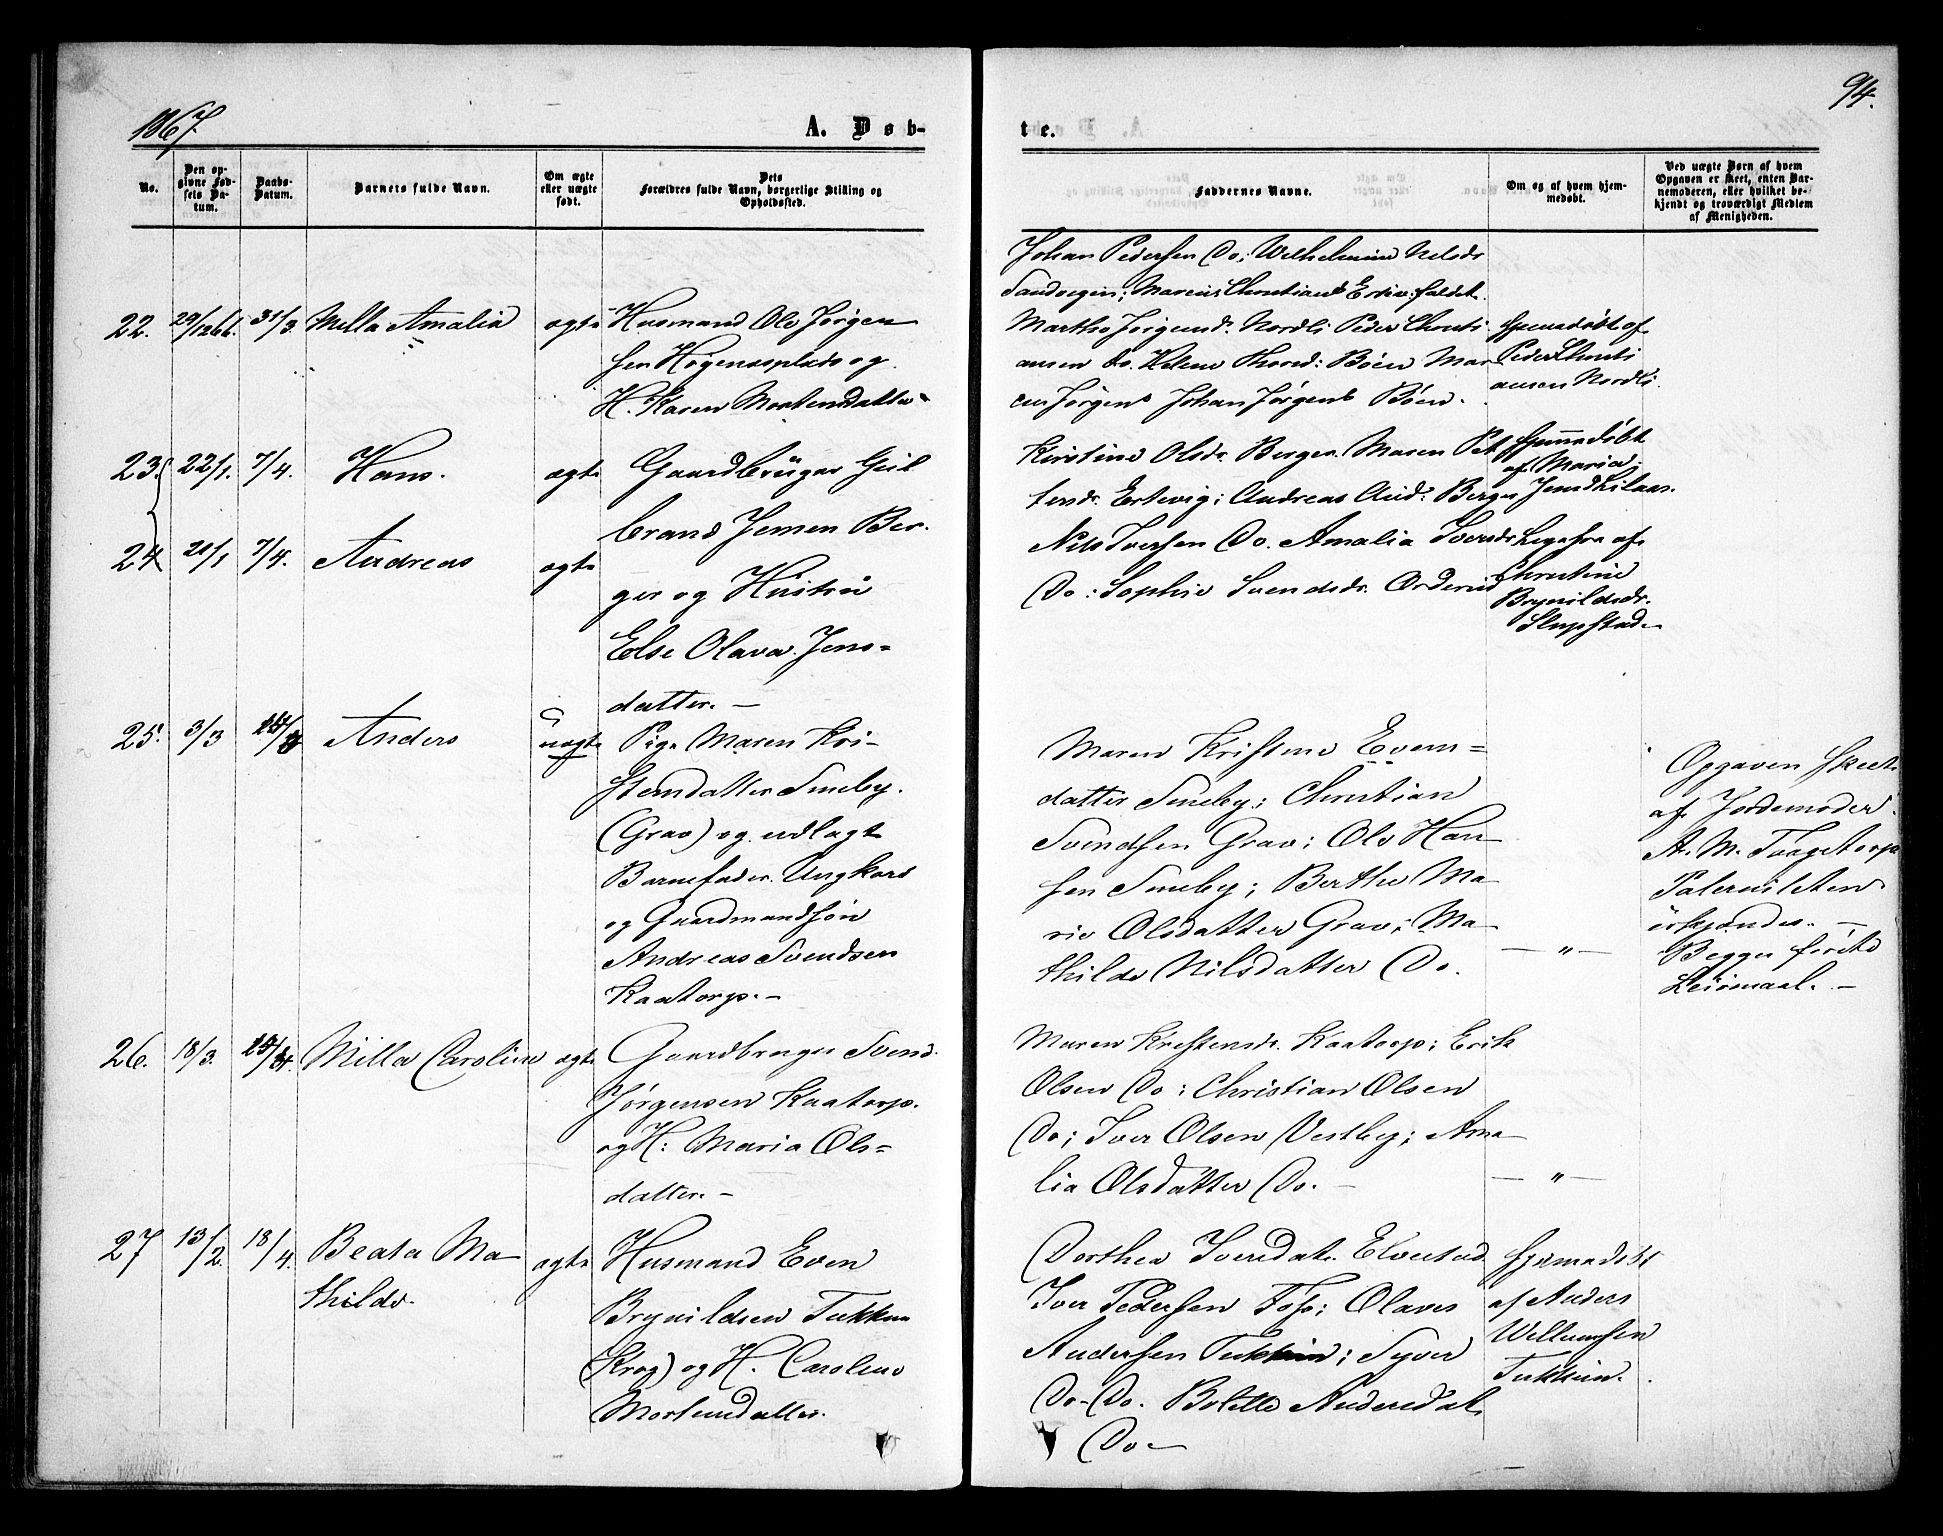 1867.
A. Døb-
te.
94.
No.
Den op-
givne Fød-
sels Da-
tum.
Daabs-
Datum.
Barnets fulde Navn.
Om ægte
eller uægte
født.
Dets
Forældres fulde Navn, borgerlige Stilling og
Opholdssted.
Faddernes Navne.
Om og af hvem hjem-
medøbt.
Ved uægte Børn af hvem
Opgaven er skeet, enten Bar-
nemoderen, eller hvilket be-
kjendt og troværdigt Medlem
af Menigheden.
22. 29/12 66. 31/3. Milla Amalia ægte
Husmand Ole Jørgen
sen Høgenesplads og
H. Karen Mortensdatter
Johan Pedersen Do; Wilhelmine Nilsdr
Sandvigen; Marcus Christians
Marthe Jørgensd: Nordli Peder Christi
ansen Do. Helene Thorsd: Böen Mar
en Jörgens Johan Jörgens Böen.
Hjemmedöbt af
Peder Christi
ansen Nordli.
23. 22/1. 7/4. Hans. ægte
24 21/1 7/4. Andreas ægte
Gaardbrüger Gul
brand Jensen Ber-
ger og Hüstrü
Else Olava Jens-
datter. —
Kirstine Olsdr. Berger. Maren Pet
tersdr. Ertevig; Andreas And: Berger
Nils Iversen Do. Amalia Iversdr
Do: Sophie Svendsdr. Orderud
Hjemmedöbt
af Maria
Jensd
Ligesaa af
Christine
Brynildsdr.
Slupstad.
25. 3/3 Anders uægte
Pige Maren Kri-
stensdatter Smeby.
(Grav) og udlagte
Barnefader Ungkarl
og Gaardmandssön
Andreas Svendsen
Kaatorp. —
Maren Kristine Evens=
datter Smeby; Christian
Svendsen Grav; Ole Han
sen Smeby; Berthe Ma
rie Olsdatter Grav; Ma-
thilde Nilsdatter Do.
— " —
Opgaven skeet
af Jordemoder
A. M. Taagetorp
Paterniteten
erkjendes. —
Begges förste
Leiermaal. —
26. 18/3. Milla Caroline ægte
Gaardbruger Svend
Jörgensen Kaatorp.
og H: Maria Ols-
datter. —
Maren Kristensdr. Kaatorp; Erik
Olsen Do; Christian Olsen
Do; Iver Olsen Vestby; Ama
lia Olsdatter Do. —
— " —
27 13/2. 18/4. Beata Ma
thilde. ægte
Husmand Even
Brynildsen Tukkun
(Krog) og H. Caroline
Mortensdatter.
Dorthea Iversdat. Elvestad
Iver Pedersen Foss; Olaves
Andersen Tukkun; Syver
Do-Do. Bolette Andersdat.
Do —
Hjemmedöbt
af Anders
Willumsen
Tukkun.